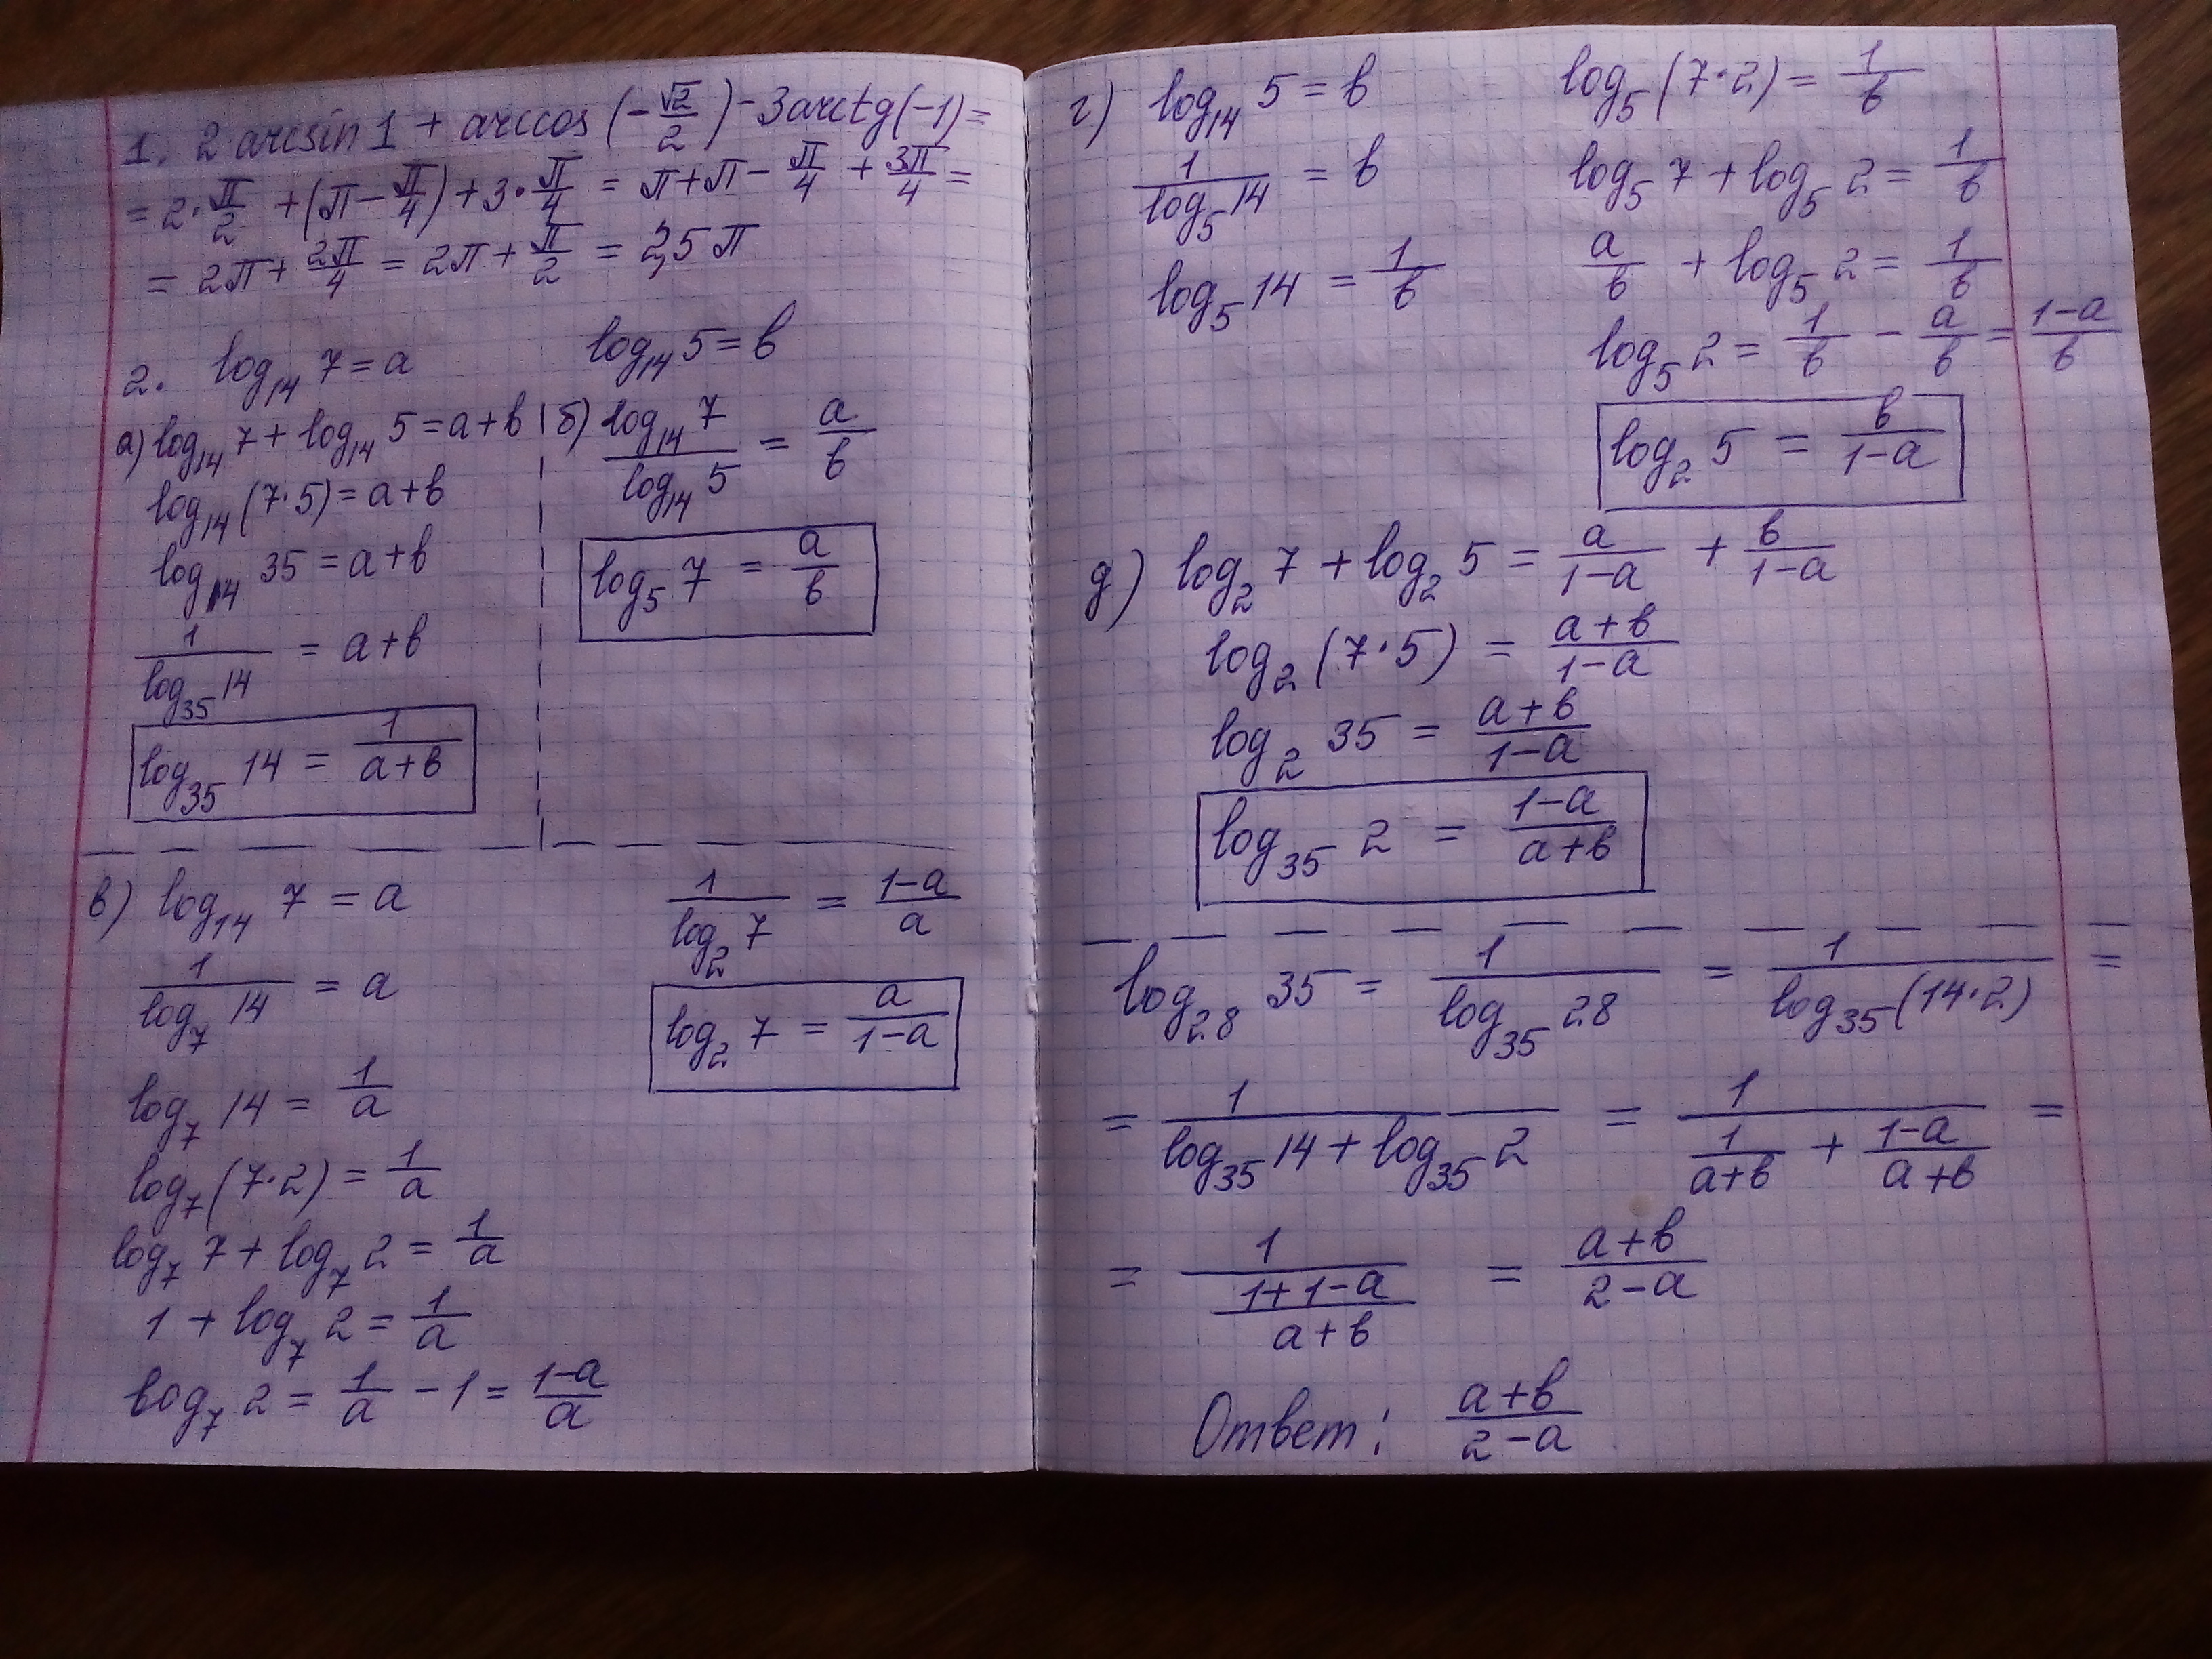 1. 2 arcsin 1 + arccos (-√2/2) - 3arctg(-1) =
= 2·π/2 + (π - π/4) + 3·π/4 = π + π - π/4 + 3π/4 =
= 2π + 2π/4 = 2π + π/2 = 2,5π
2. log₁₄ 7 = a    log₁₄ 5 = в
а) log₁₄ 7 + log₁₄ 5 = a+в
log₁₄ (7·5) = a+в
log₁₄ 35 = a+в
1/log₃₅ 14 = a+в
log₃₅ 14 = 1/(a+в)
б) log₁₄ 7 / log₁₄ 5 = a/в
log₅ 7 = a/в
в) log₁₄ 7 = a
1/log₇ 14 = a
log₇ 14 = 1/a
log₇ (7·2) = 1/a
log₇ 7 + log₇ 2 = 1/a
1 + log₇ 2 = 1/a
log₇ 2 = 1/a - 1 = (1-a)/a
1/log₂ 7 = (1-a)/a
log₂ 7 = a/(1-a)
г) log₁₄ 5 = в
1/log₅ 14 = в
log₅ 14 = 1/в
log₅ (7·2) = 1/в
log₅ 7 + log₅ 2 = 1/в
a/в + log₅ 2 = 1/в
log₅ 2 = 1/в - a/в = (1-a)/в
log₂ 5 = в/(1-a)
g) log₂ 7 + log₂ 5 = a/(1-a) + в/(1-a)
log₂ (7·5) = (a+в)/(1-a)
log₂ 35 = (a+в)/(1-a)
log₃₅ 2 = (1-a)/(a+в)
log₂₈ 35 = 1/log₃₅ 28 = 1/log₃₅ (14·2) =
= 1/(log₃₅ 14 + log₃₅ 2) = 1/(1/(a+в) + (1-a)/(a+в)) =
= 1/((1+1-a)/(a+в)) = (a+в)/(2-a)
Ответ: (a+в)/(2-a)